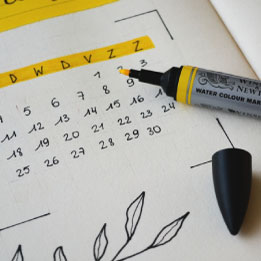 D W D V Z Z
1 2 3
4 5 6 7 8 9
11 12 13 14 15 16 17
18 19 20 21 22 23 24
25 26 27 28 29 30
WATER COLOUR MAR